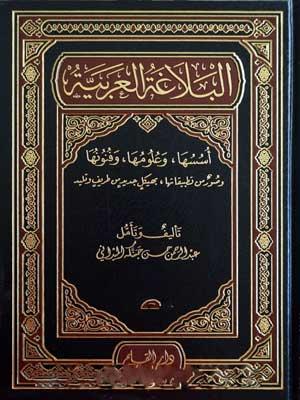 البَلاَغَةُ العَرَبيَّةُ
أُسُسُهَا، وَعُلُومُهَا، وَفُنُونُهَا
وصُوَرٌ من تطبيقاتها، بهيكلٍ جديدٍ من طريفٍ وتليدٍ
تأليفُ وَتَأَمُّل
عبد الرحمن حسن حبنكة الميداني
دار القلم